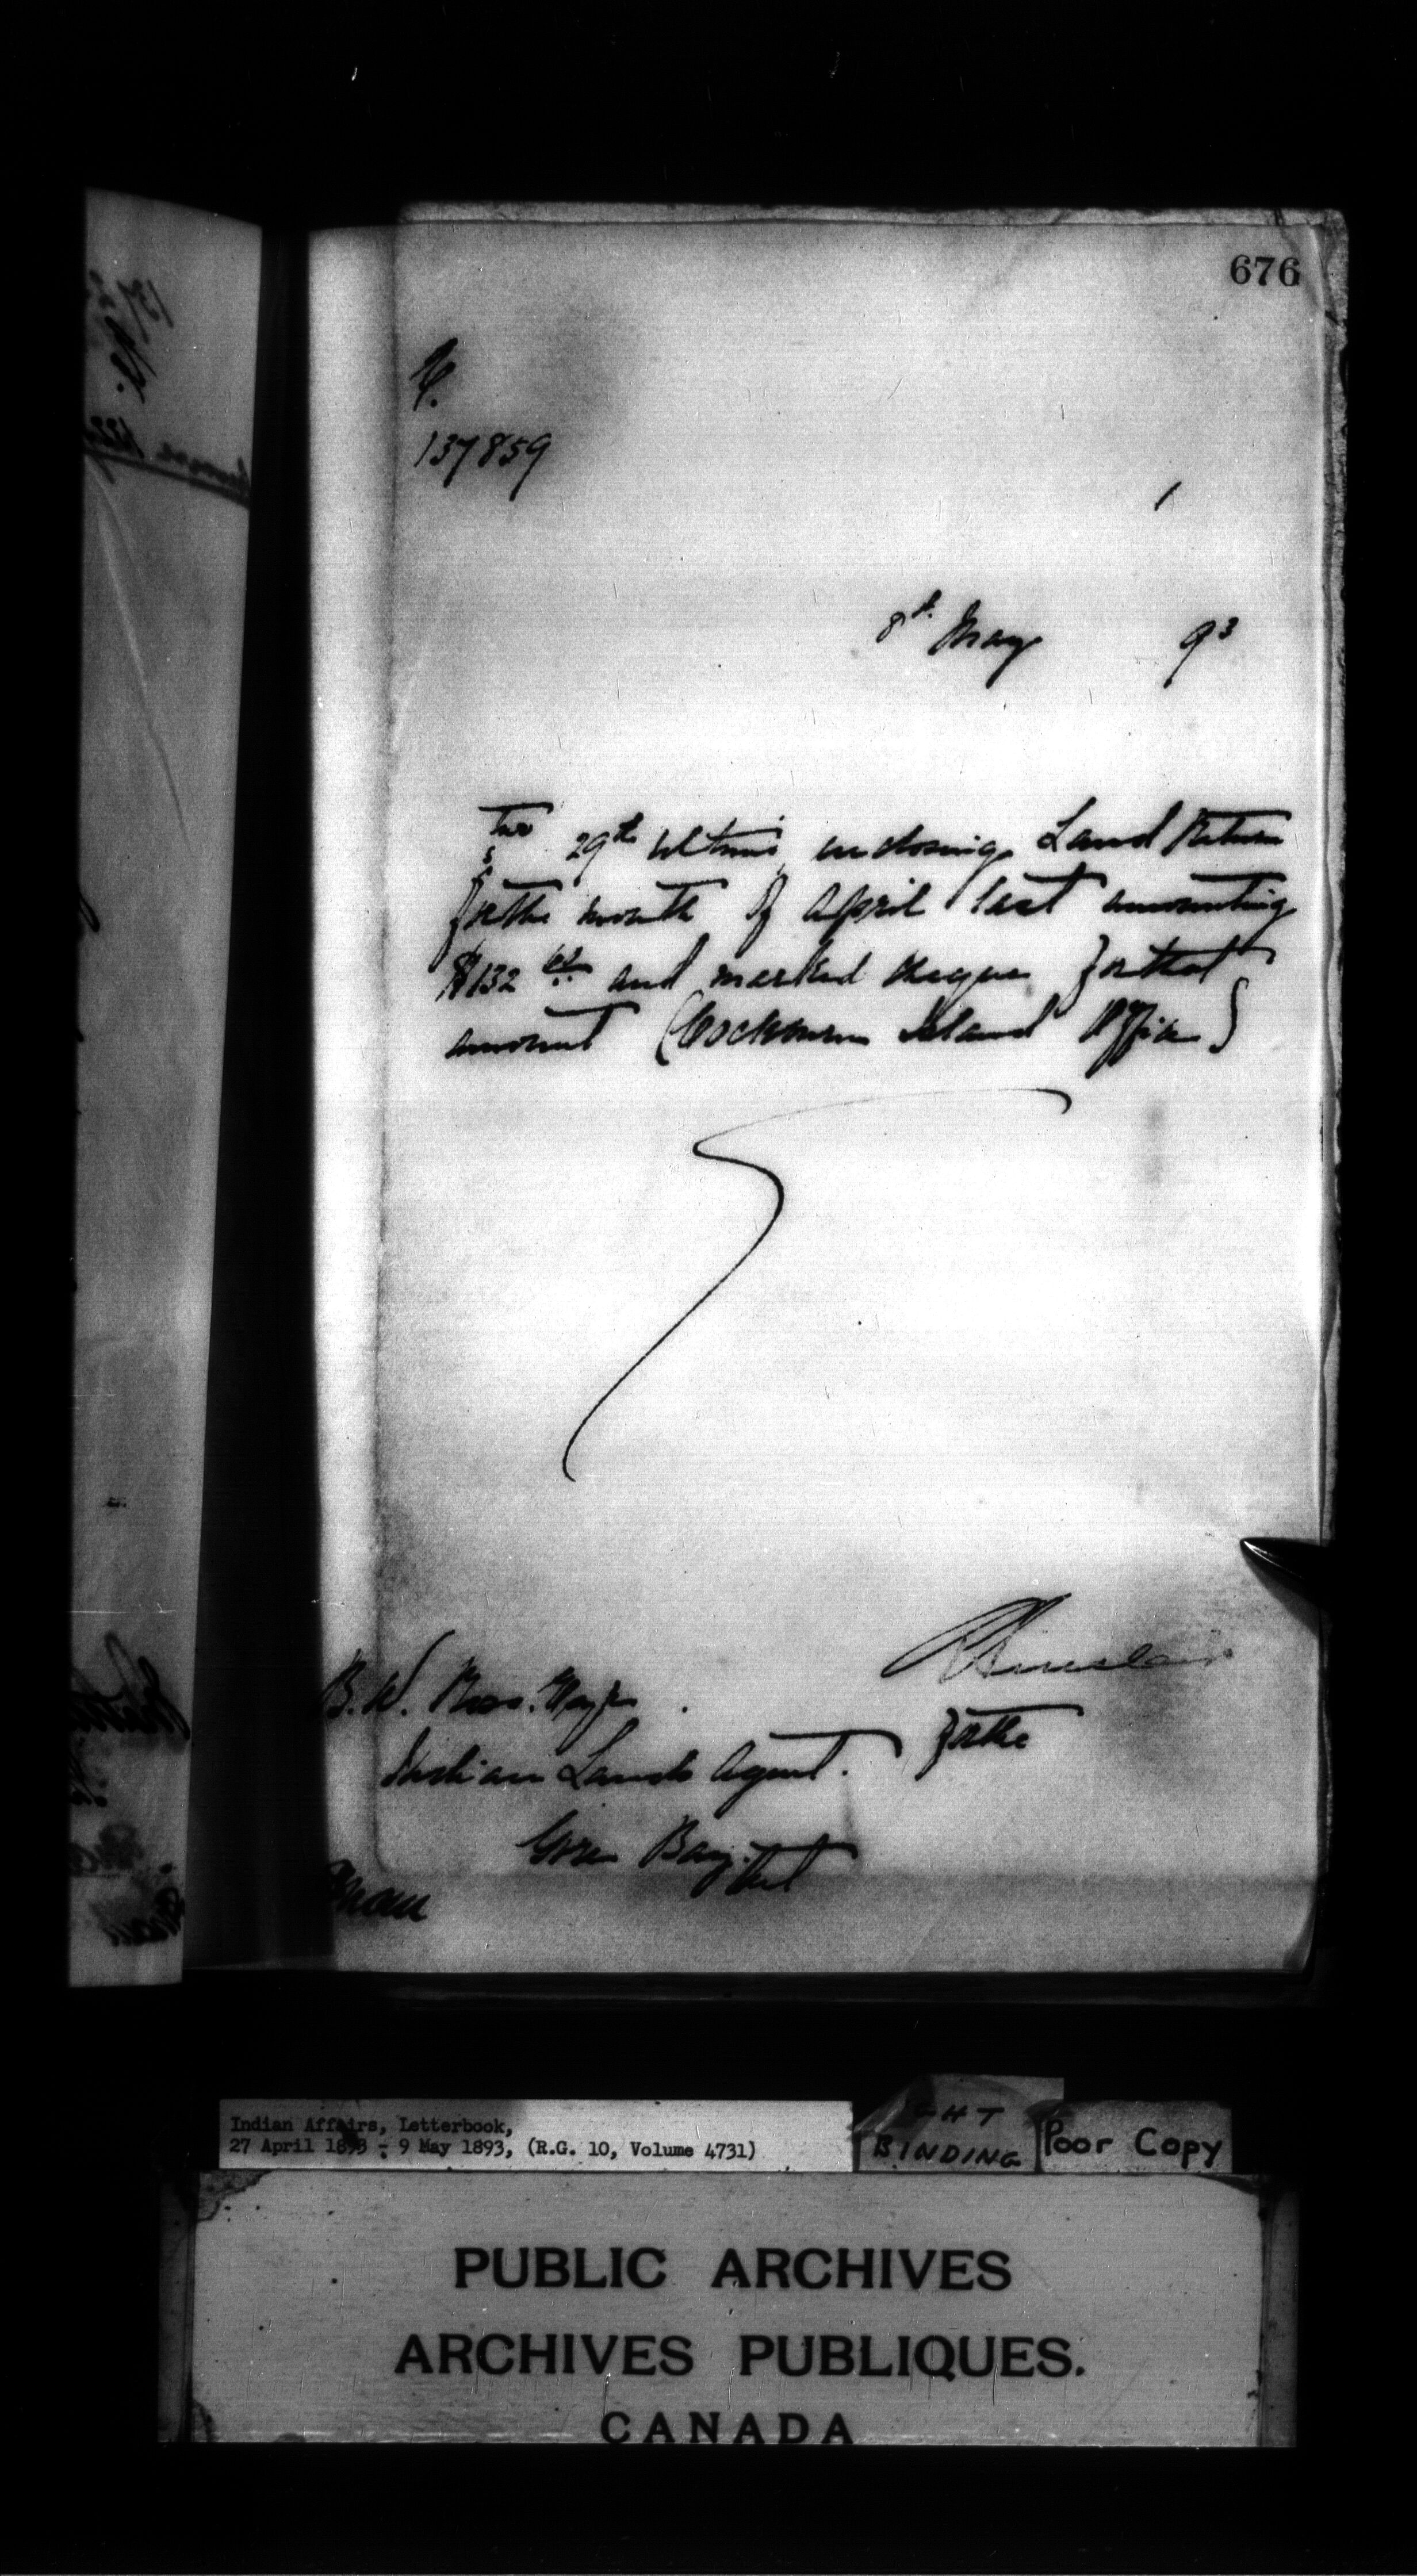 676
137859
8th May 93
two 29th Ultimo, enclosing Land Return
for the month of April last amounting
$132 and marked cheque for that
amount (Cockburn Island Office)
B. W. Ross.
Indian Lands Agent. for the
Gore Bay.
Ont
Indian Affairs, Letterbook,
27 April 1893 - 9 May 1893, (R.G. 10, Volume 4731)
BINDING
Poor Copy
PUBLIC ARCHIVES
ARCHIVES PUBLIQUES.
CANADA